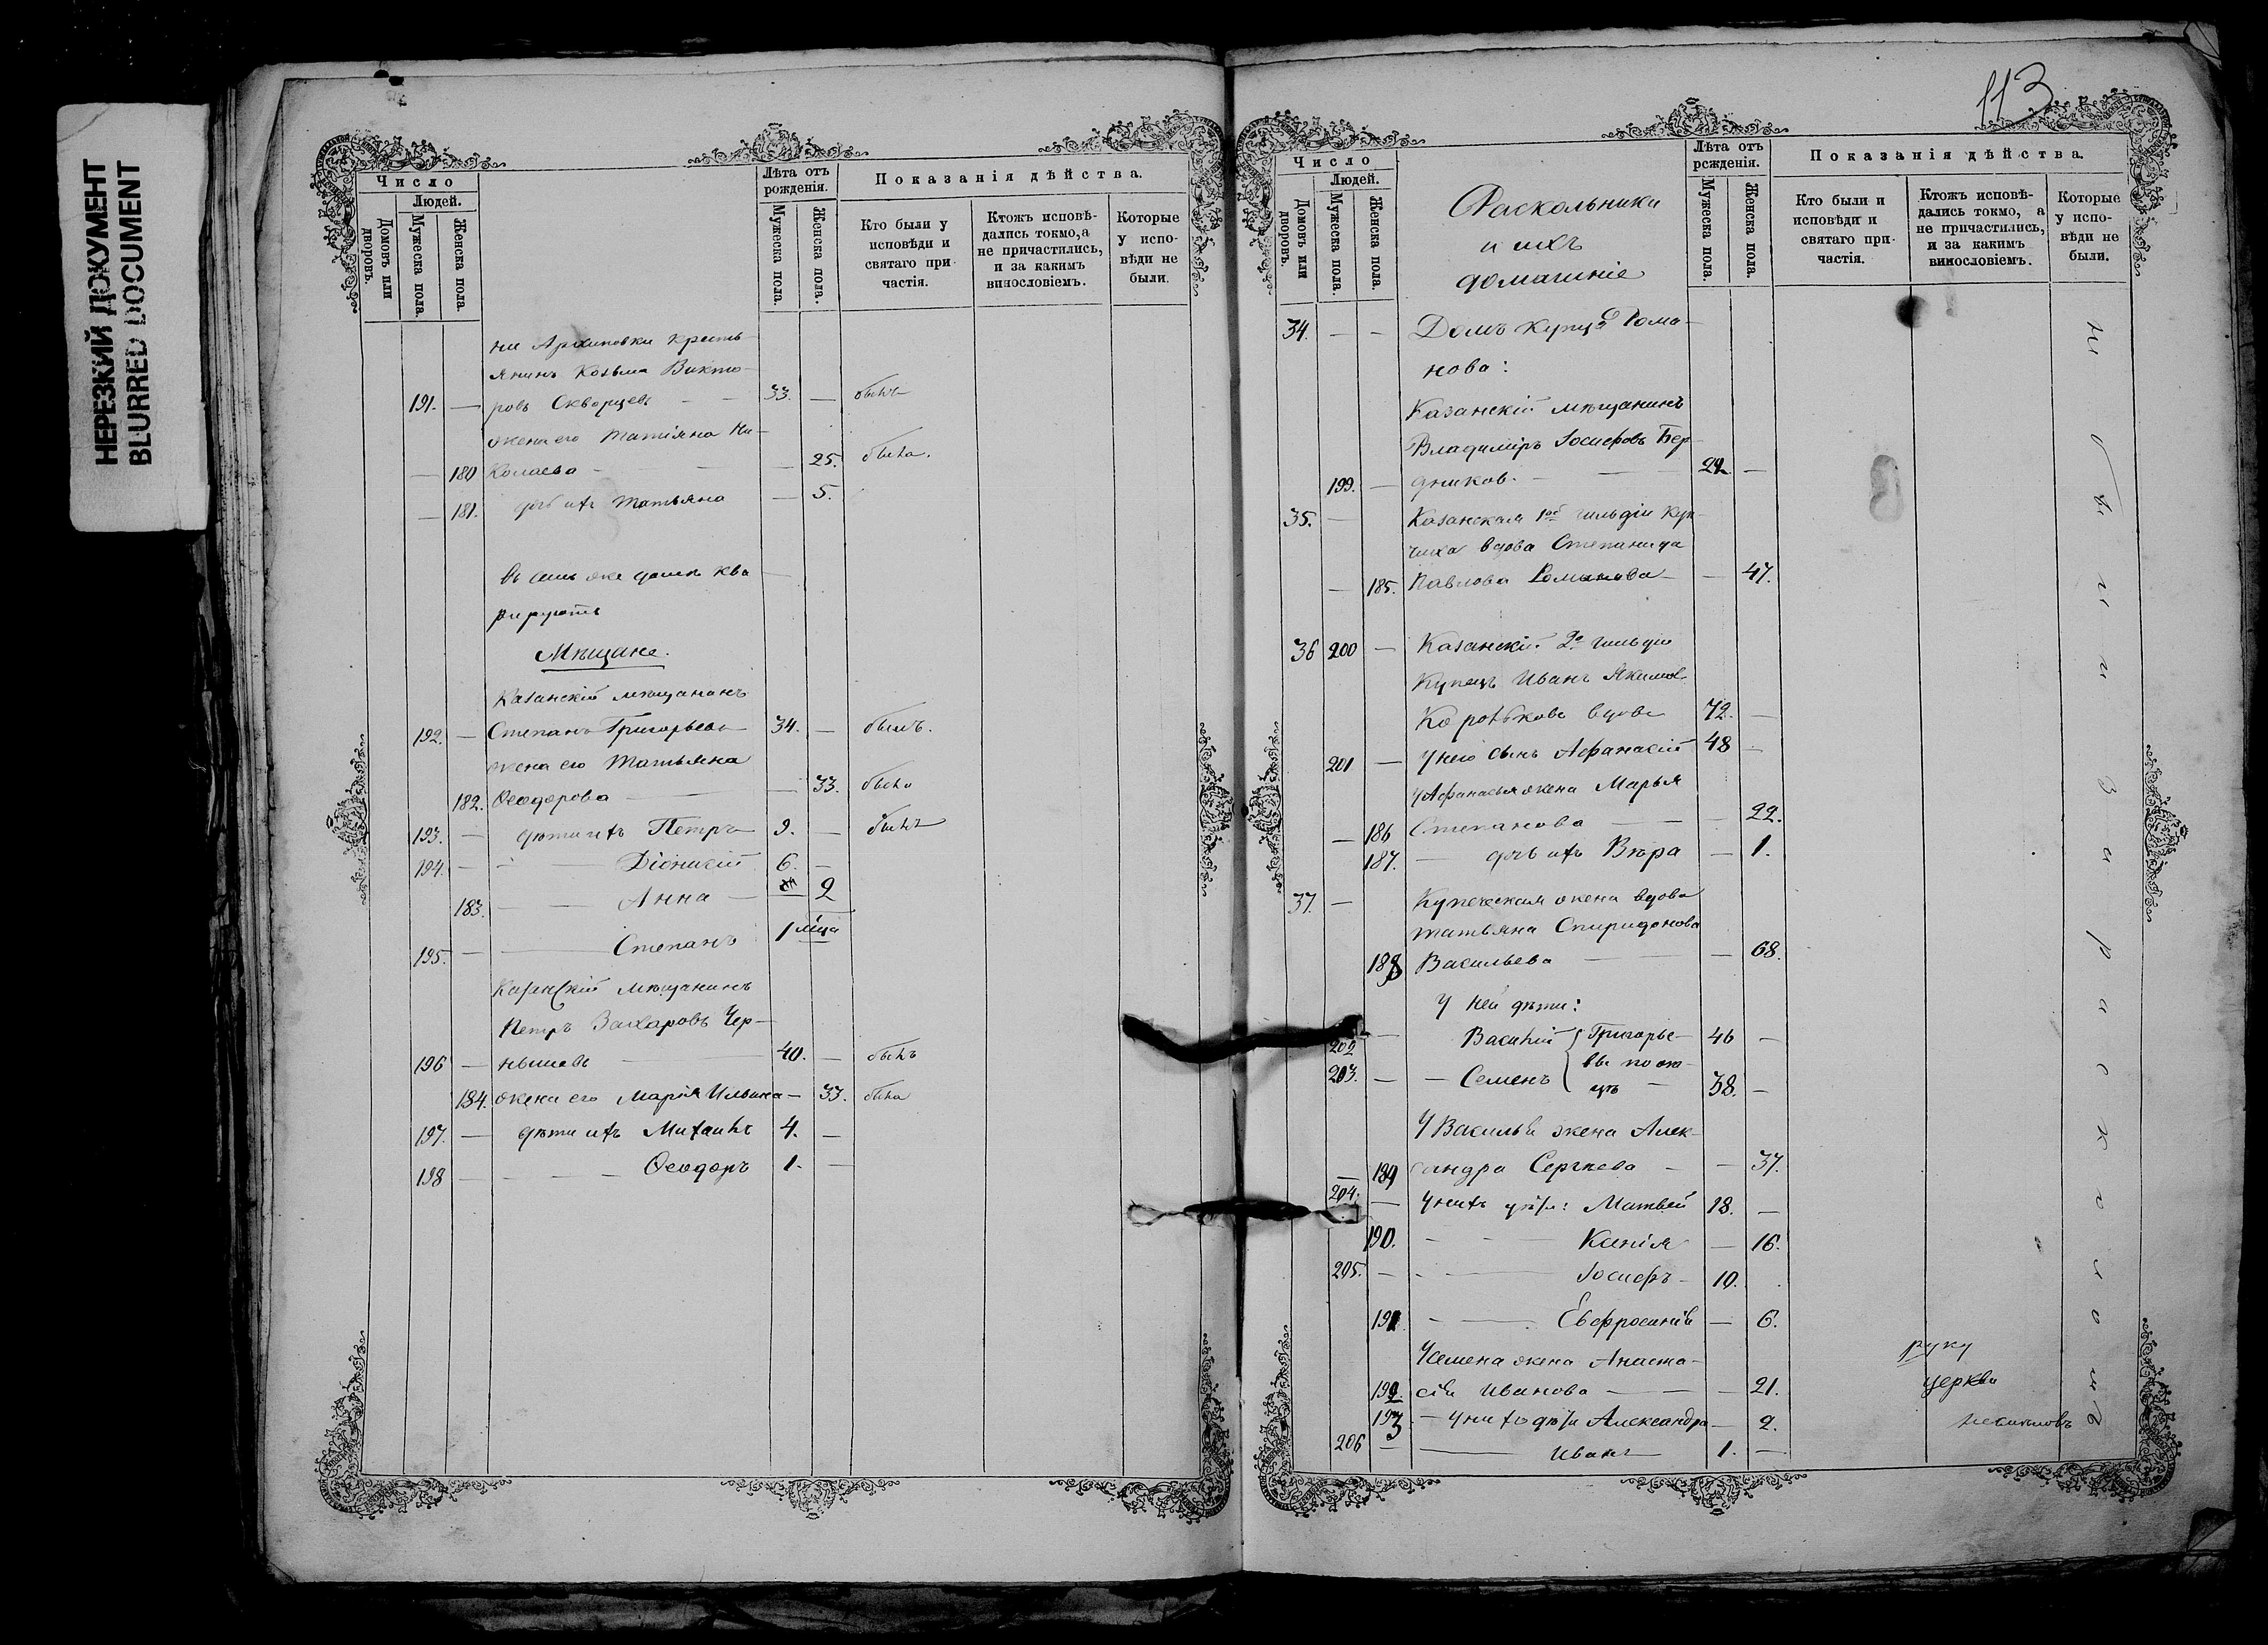 НЕРЕЗКИЙ ДОКУМЕНТ
BLURRED DOCUMENT
Число
Людей.
Домовъ или дворовъ.
Мужеска пола.
Женска пола.
Лѣта отъ рожденія.
Мужеска пола.
Женска пола.
Показанія дѣйства.
Кто были у исповѣди и святаго при частія.
Ктожъ исповѣ- дались токмо, а не причастились, и за какимъ винословіемъ.
Которые у испо- вѣди не были.
ни Архиповки кресть-
янинъ Козьма Викто-
191. — ровъ Скворцевъ — — 33. — былъ
жена его Татіяна Ни-
— 180 колаева — — — 25. была.
— 181. дчь ихъ Татьяна — 5.
въ семъ же домѣ ква
рируютъ
Мѣщане.
Казанскій мѣщанинъ
192. — Степанъ Григорьевъ 34. — былъ.
жена его Татьяна
182. Ѳеодорова — — 33. была
193. — дѣти ихъ Петръ 9. — былъ
194. — — Діонисій 6. —
183. — — Анна — — 2
195. — — Степанъ 1 мца
Казанскій мѣщанинъ
Петръ Захаровъ Чер-
196 — нышевъ — 40. — былъ
184. жена его Марія Ильина — 33. была
197. — дѣти ихъ Михаилъ 4. —
198 — — — — Ѳеодоръ 1. —
113
Число
Людей.
Домовъ или дворовъ.
Мужеска пола.
Женска пола.
Раскольники
и ихъ
домашніе
Лѣта отъ рожденія.
Мужеска пола.
Женска пола.
Показанія дѣйства.
Кто были и исповѣди и святаго при- частія.
Ктожъ исповѣ- дались токмо, а не причастились, и за какимъ винословіемъ.
Которые у испо- вѣди не были.
34. — — Домъ купца Рома-
нова:
Казанскій мѣщанинъ
Владиміръ Іосифовъ Бер-
199. — дников. — — 22 —
35. — Казанская 1ой гильдіи куп-
чиха вдова Степанида
— 185. Павлова Романова — — 47.
36 200 — Казанскій 2й гильдіи
купецъ Иванъ Якимов
Коротьковъ вдовъ 72. —
201 — У него сынъ Афанасій 48 —
У Афанасья жена Марья
— 186 Степанова — — — 22.
187. — дчь ихъ Вѣра — 1.
37. — Купеческая жена вдова
Татьяна Спиридонова
188 Васильева — — — 68.
У ней дѣти:
202 — Василій { Григорье- 46 —
203. — — Семенъ { вы по от- цѣ — 38. —
У Василья жена Алек-
— 189 сандра Сергѣева — — 37.
204. — У нихъ дѣти: Матвей 18. —
190. — — Ксенія — 16.
205. — — — Іосифъ — 10.
191. — — Евфросинія — 6.
У Семена жена Анаста-
192. сія Иванова — — — 21.
193 — у нихъ дѣти Александра — 2.
206 — — Иванъ — 1. —
не были за расколомъ
руку
церкви